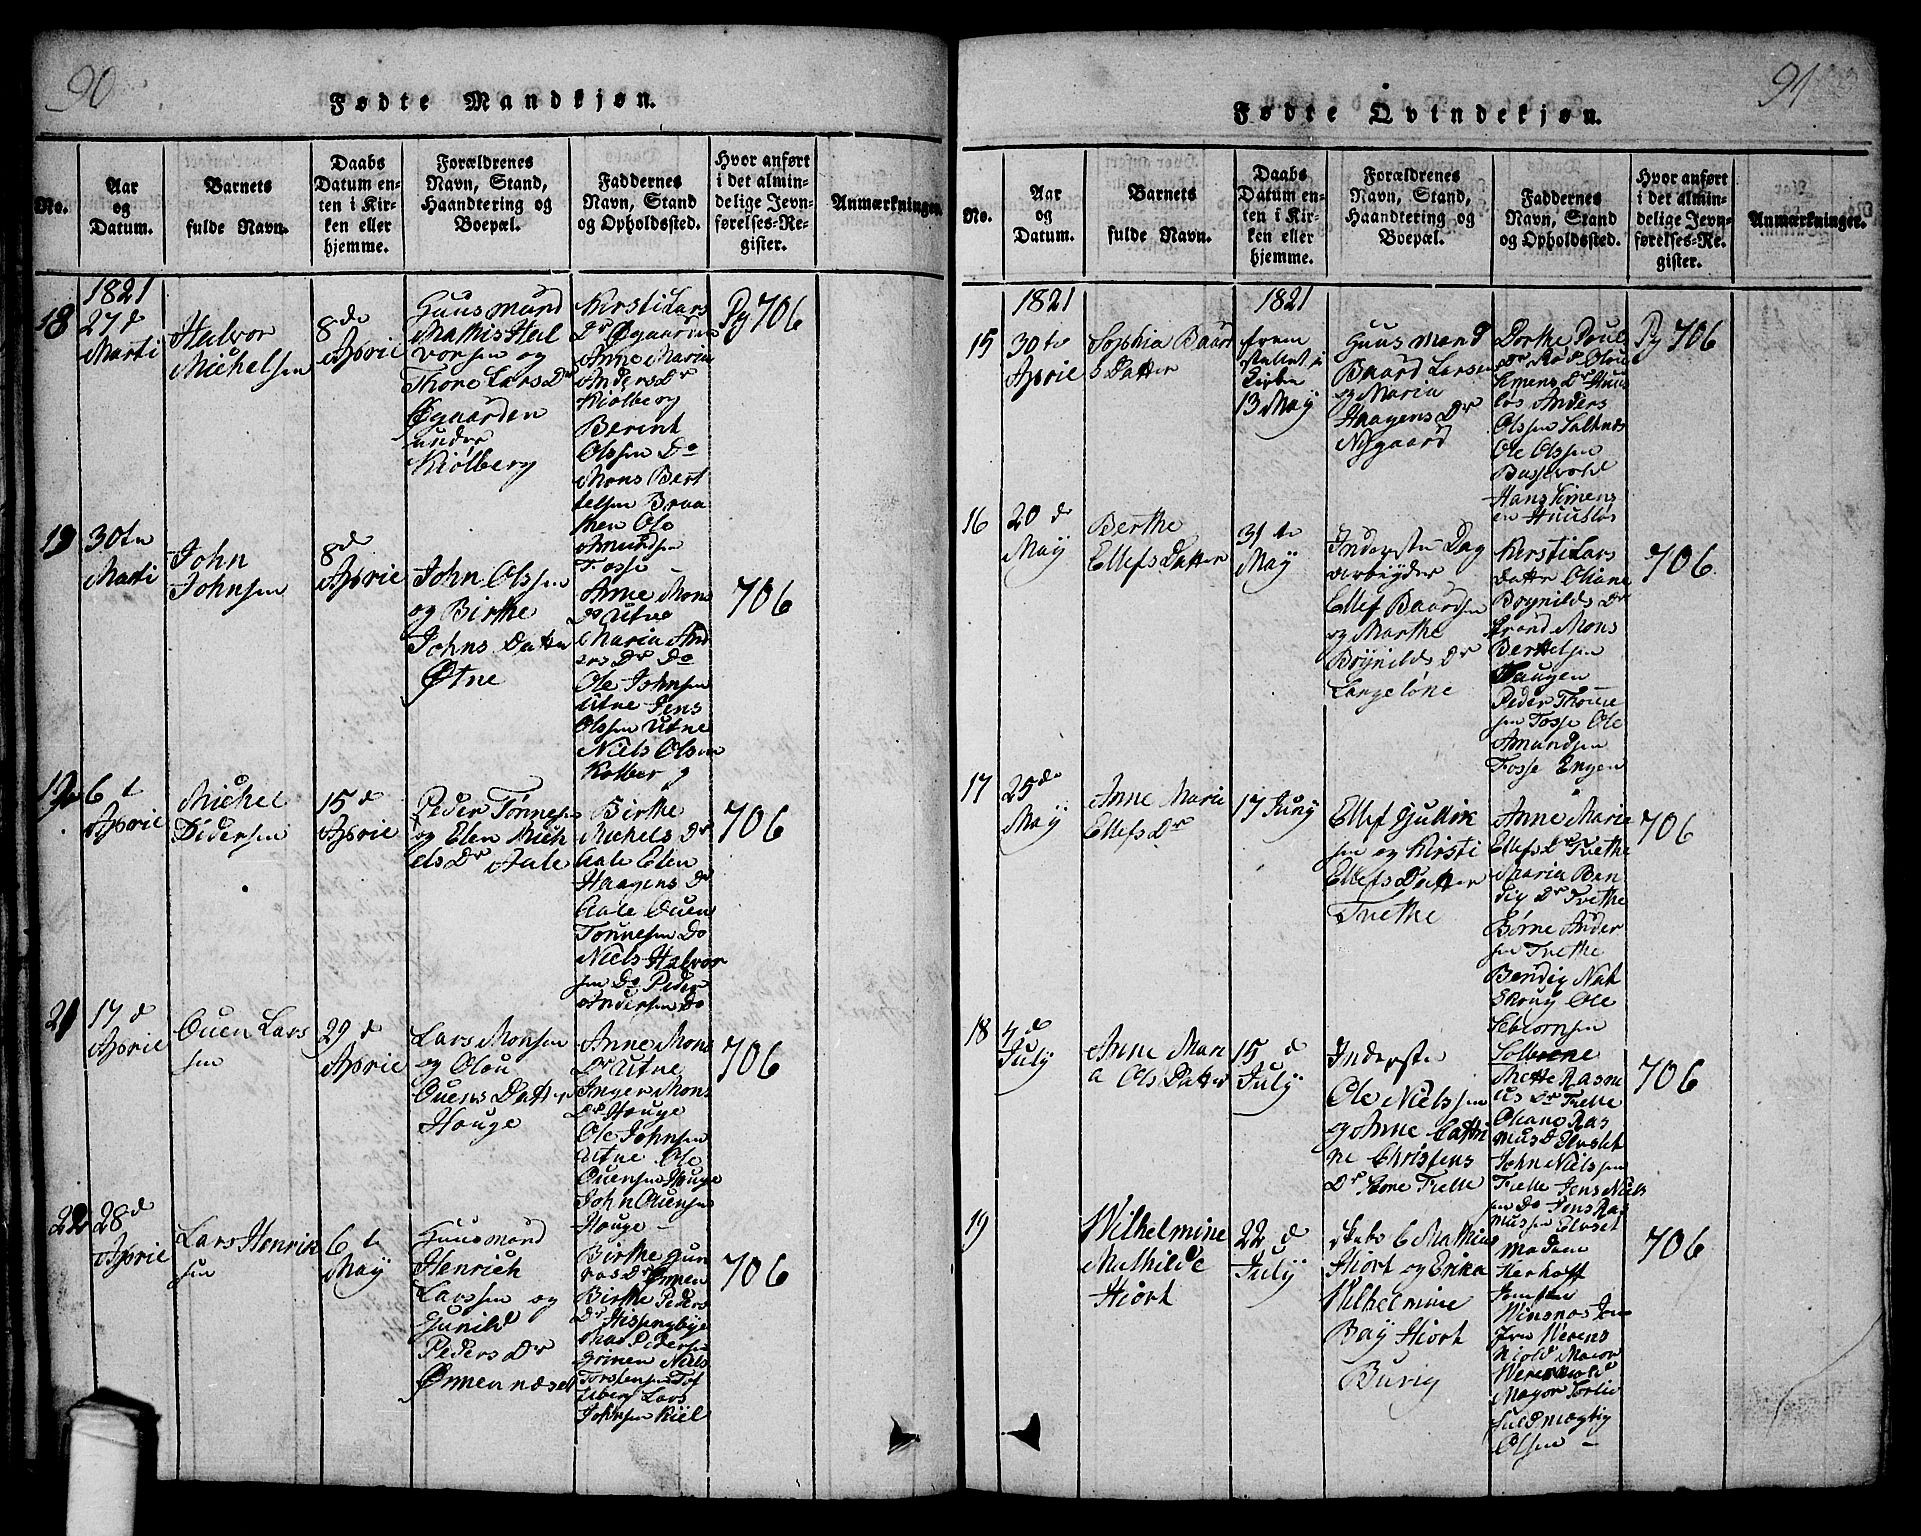 90
Fødte Mandkjøn.
No.
Aar
og
Datum.
Barnets
fulde Navn.
Daabs
Datum en-
ten i Kir-
ken eller
hjemme.
Forældrenes
Navn, Stand,
Haandtering og
Boepæl.
Faddernes
Navn, Stand
og Opholdssted.
Hvor anført
i det almin-
delige Jevn-
førelses-Re-
gister.
Anmærkninger.
1821
18
27 d
Marti
Halvor
Michelsen
8 de
Aprie
Huusmand
Mathis Hal
vorsen og
Thore Lars Dr
Øgaarden
under
Kiølberg
Kirsti Lars
Dr Øgaarden
Anne Maria
Anders Dr
Kiølberg
Berint
Olssen Do
Mons Bert
telsen Braa
then Ole
Amundsen
Fosse
Pg 706
19
30 te
Marti
John
Johnsen
8 de
Aprie
John Olssen
og Birthe
Johns Datter
Øtne
Anne Mons
Dr Utne
Maria And
ers Dr Do
Ole Johnsen
Utne Jens
Olssen Utne
Niels Olsen
Kolberg
706
6 t
Aprie
Michel
Pedersen
15 d
Aprie
Peder Tønnesen
og Elen Mich
els Dr Aale
Birthe
Michels Dr
Aale Elen
Haagens Dr
Aale Ouen
Tønnesen Do
Niels Halvor
sen Do Peder
Andersen Do
706
21
17 d
Aprie
Ouen Lars
sen
29 d
Aprie
Lars Monsen
og Olou
Ouens Datter
Houge
Anne Mons
Dr Utne
Inger Mons
Dr Houge
Ole Johnsen
Utne Ole
Ouensen Houge
John Ouensen
Houge —
706
22
28 d
Aprie
Lars Henrik
sen
6 t
Maÿ
Huusmand
Henrich
Larssen og
Gunild
Peders Dr
Ønnennæset
Birthe Gun
Dr Ønnen
Birthe Peders
Dr Hissingbye
Mad P Pedersen
Grinen Niels
Torstensen Tof
Lars
Johnsen Kiil
706
91
Fødte Qvindekjøn.
No.
Aar
og
Datum.
Barnets
fulde Navn.
Daabs
Datum en-
ten i Kir-
ken eller
hjemme.
Forældrenes
Navn, Stand,
Haandtering og
Boepæl.
Faddernes
Navn, Stand
og Opholdssted.
Hvor anført
i det almin-
delige Jevn-
førelses-Re-
gister.
Anmærkninger.
1821
1821
15
30 te
Aprie
Sophia Baard
s Datter
frem
stillet i
Kirken
13 May
Huusmand
Baard Larsen
og Maria
Haagens Dr
Nÿgaard
Dorthe Poul
Dr Rød Olou
Simens Dr Huus
løs Anders
Olssen Saltnæs
Ole Olssen
Hans Simens
en Huusløs
Pg 706
16
20 de
Maÿ
Berthe
Ellefs Datter
31 te
Maÿ
Inderste Dag
arbeÿder
Ellef Baardsen
og Marthe
Brÿnilds Dr
Langeløne
Kirsti Lars
Datter Oliane
Brynilds Dr
Strand Mons
Berthelsen
Haugen
Peder Thoue
sen Fosse Ole
Amundsen
Fosse Engen
706
17
25 de
Maÿ
Anne Marie
Ellefs Dr
17 Juny
Ellef Gulbik
sen og Kirsti
Ellefs Datter
Tvethe
Anne Marie
Ellefs Dr Tvethe
Maria Ben
dig Dr Tvethe
Børne Ander
sen Tvethe
Bendig Nat
skoug Ole
Solbrene
706
18
4 d
July
Anne Mari
a Ols Datter
15 d
July
Inderste
Ole Nielssen
og Anne Cathri
ne Christens
Dr Tielle
Mette Rasm
us Dr Tielle
Oliane Ras
mus D Elvslet
John Nielssen
Tielle Jens Niels
sen Do Jens Ras
mussen Elvset
706
19
Wilhelmine
Mathilde
Hiort
22 d
Julÿ
Mathias
Hiort og Erika
Wilhelmine
Baÿ Hiort
Burig
Madam
Herhoff
Jomfru
Winsnæs Jom
fru Werens
kiold Maior
Werenskiold
Mayor Sørlie
Fuldmægtig
Olsen —
706